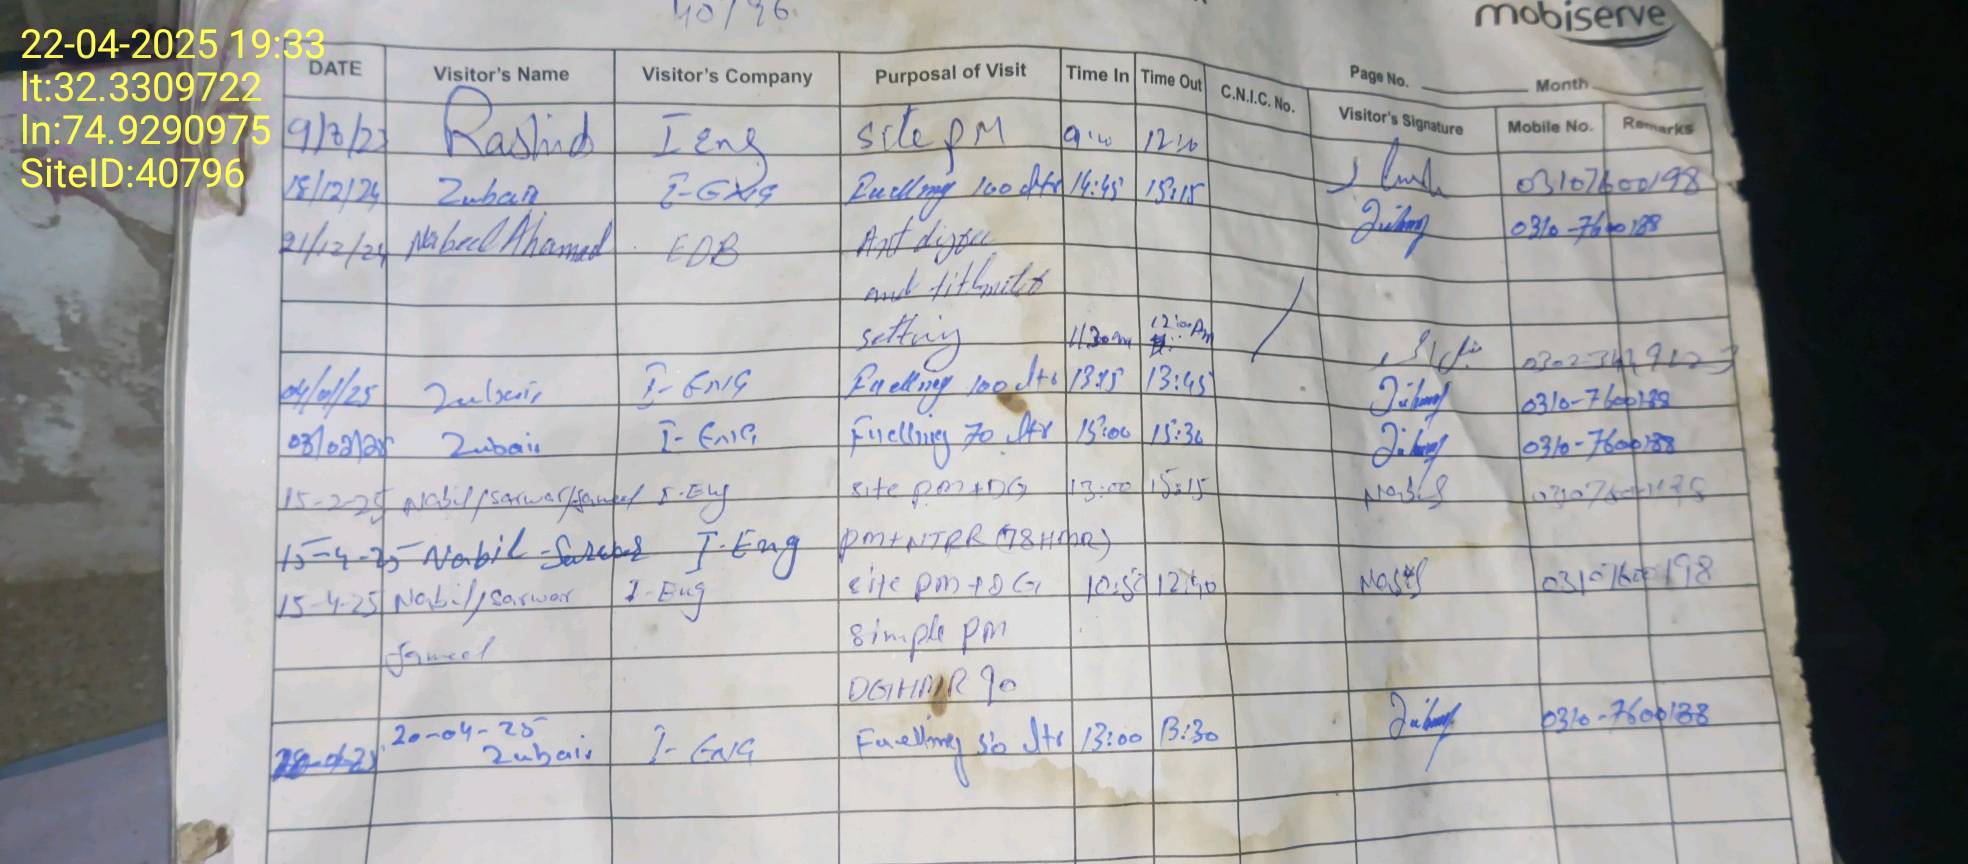 22-04-2025 19:33
lt:32.3309722
ln:74.9290975
SiteID:40796
40796
mobiserve
Page No. Month
DATE Visitor's Name Visitor's Company Purposal of Visit Time In Time Out C.N.I.C. No. Visitor's Signature Mobile No. Remarks
9/8/23 Rashid I Eng site PM 03107600198
18/12/24 Zubair I-ENG Fuelling 100 ltr 14:45 15:15 0310-7600188
21/12/24 Nabeel Ahamad EDB
and
setting 11:30am 12:00pm
04/01/25 Zubair I-ENG Fuelling 100 ltr 13:15 13:45 0310-7600188
03/02/25 Zubair I-ENG Fuelling 70 ltr 15:00 15:30 0310-7600188
15-2-25 Nabil/sarwar/Jameel I-Eng site pm+DG 13:00 15:15 Nabil
15-4-25 Nabil-Sarwar I-Eng pm+NTRR (78HMR)
15-4-25 Nabil/sarwar I-Eng site pm+DG 10:50 12:40 Nabil 03107600198
Jameel simple pm
DGHMR 90
20-04-25 Zubair I-ENG Fuelling 50 ltr 13:00 13:30 0310-7600188